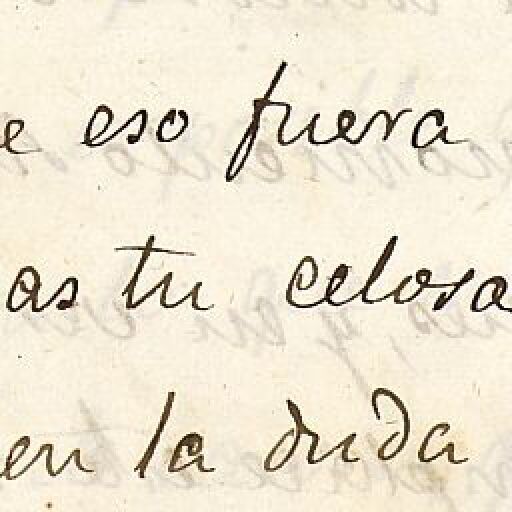 e eso fuera
as tu celosa
en la duda